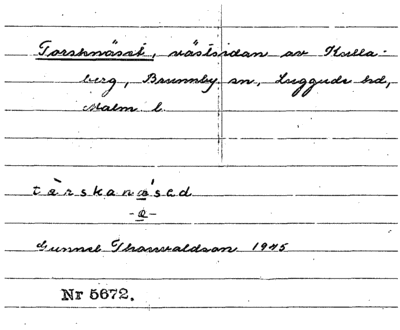 Torsknäset, västsidan av Kulla-
berg, Brunnby sn, Luggude hd,
Malm l.
tàrskanǽsed
-ø-
Gunnel Thorvaldson 1945
Nr 5672.